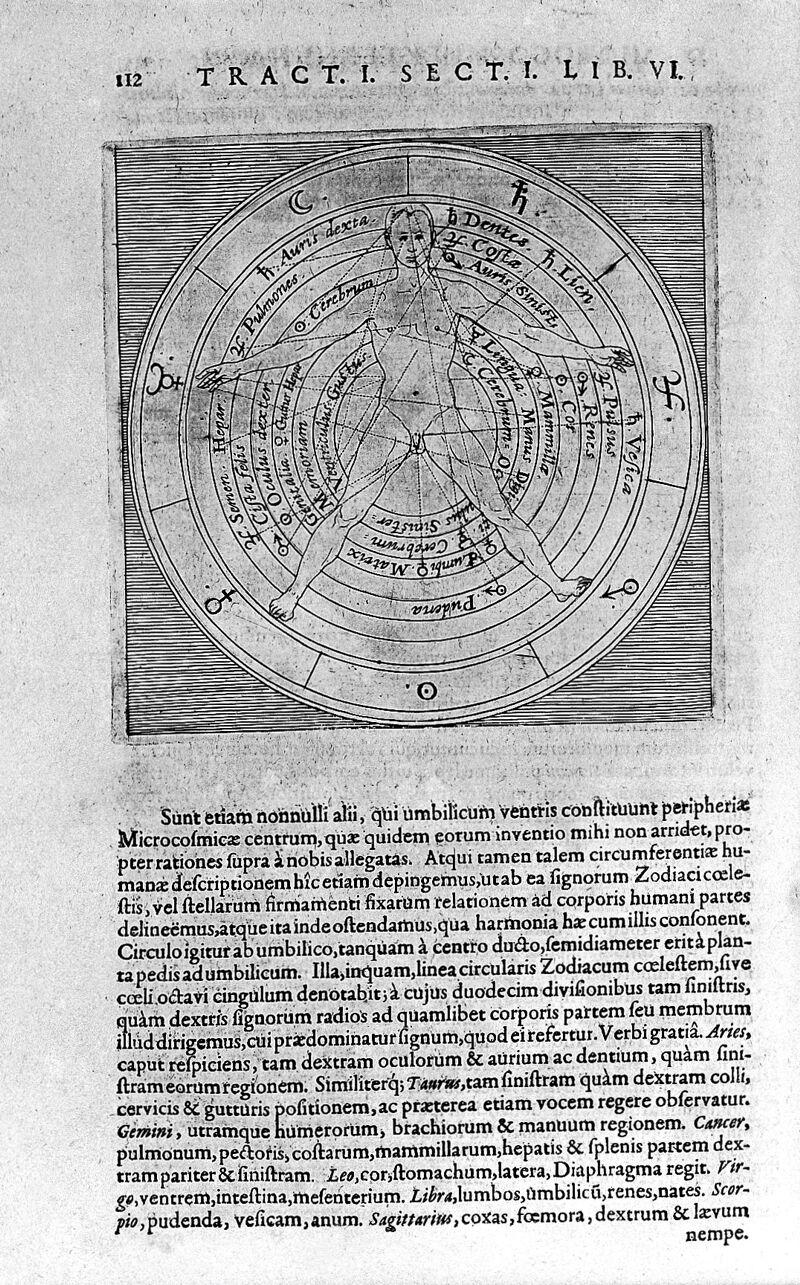 112 TRACT. I. SECT. I. LIB. VI.
☾.
♄.
♄. Auris dextra.
♄ Dentes.
♃. Costæ
♂ Auris sinist.
♄. Lien.
♃ Pulmones.
☉. Cerebrum
☿ Lingua.
☾ Cerebrum.
Manus
♀ Mammillæ.
☉ Cor
♂ Renes
♃ Pulsus
♄ Vesica
♃.
Ventriculus. Gustus.
Memoriam
Genitalia. ♀ Gutur Hepar
☉ Oculus dexter
♂ Cista felis
♃ Semen. Hepar
☿
♂
Sinister.
☿ Cerebrum.
♀ Matrix
♀ Lumbi
♂ Pudena
☉
Sunt etiam nonnulli alii, qui umbilicum ventris constituunt peripheriæ
Microcosmicæ centrum, quæ quidem eorum inventio mihi non arridet, pro-
pter rationes supra à nobis allegatas. Atqui tamen talem circumferentiæ hu-
manæ descriptionem hîc etiam depingemus, ut ab ea signorum Zodiaci cœle-
stis, vel stellarum firmamenti fixarum relationem ad corporis humani partes
delineëmus, atque ita inde ostendamus, qua harmonia hæ cum illis consonent.
Circulo igitur ab umbilico, tanquam à centro ducto, semidiameter erit à plan-
ta pedis ad umbilicum. Illa, inquam, linea circularis Zodiacum cœlestem, sive
cœli octavi cingulum denotabit; à cujus duodecim divisionibus tam sinistris,
quàm dextris signorum radios ad quamlibet corporis partem seu membrum
illud dirigemus, cui prædominatur signum, quod ei refertur. Verbi gratiâ. Aries,
caput respiciens, tam dextram oculorum & aurium ac dentium, quàm sini-
stram eorum regionem. Similiterq; Taurus, tam sinistram quàm dextram colli,
cervicis & gutturis positionem, ac præterea etiam vocem regere observatur.
Gemini, utramque humerorum, brachiorum & manuum regionem. Cancer,
pulmonum, pectoris, costarum, mammillarum, hepatis & splenis partem dex-
tram pariter & sinistram. Leo, cor, stomachum, latera, Diaphragma regit. Vir-
go, ventrem, intestina, mesenterium. Libra, lumbos, umbilicũ, renes, nates. Scor-
pio, pudenda, vesicam, anum. Sagittarius, coxas, fœmora, dextrum & lævum
nempe.